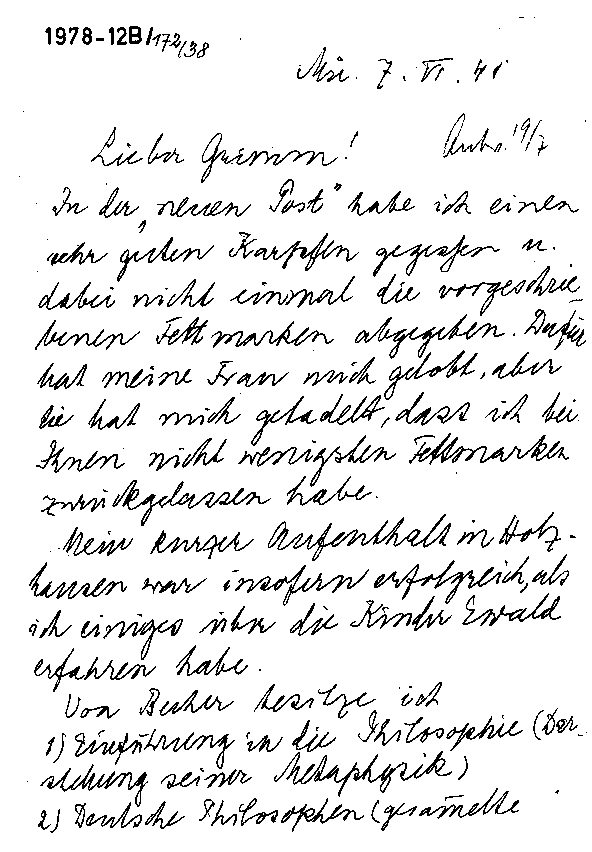 1978-12B/172/38
Mü. 7. VI. 41
Antw. 19/7
Lieber Gremm!
In der „neuen Post" habe ich einen
sehr guten Karpfen gegessen u.
dabei nicht einmal die vorgeschrie-
benen Fettmarken abgegeben. Dafür
hat meine Frau mich gelobt, aber
sie hat mich getadelt, dass ich bei
Ihnen nicht wenigsten Fettmarken
zurückgelassen habe.
Mein kurzer Aufenthalt in Holz-
hausen war insofern erfolgreich, als
ich einiges über die Kinder Ewald
erfahren habe.
Von Becher besitze ich
1) Einführung in die Philosophie (Dar-
stellung seiner Metaphysik)
2) Deutsche Philosophen (gesam̄elte